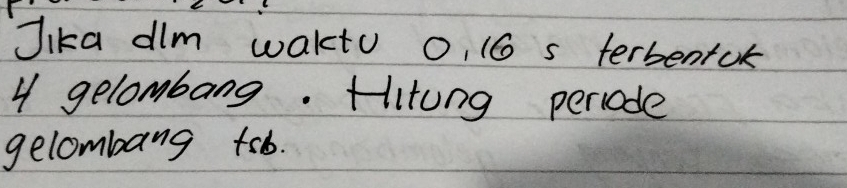 Jika dlm waktu 0,16 s terbentuk
4 gelombang. Hitung periode
gelombang tsb.